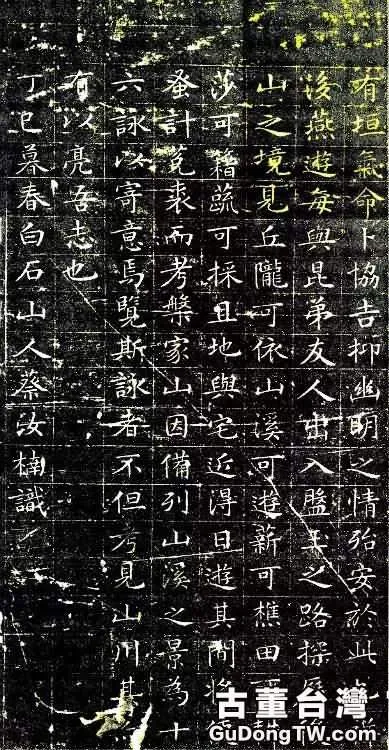 有垣氣命卜協吉抑幽明之情殆安於此
後燕遊每與昆弟友人出入盤玉之路探
山之境見丘隴可依山溪可遊薪可樵田可
莎可籍蔬可採且地與宅近得日遊其間將
蚤計菟裘而考槃家山因備列山溪之景為十
六詠以寄意焉覽斯詠者不但巧見山川其
有以亮吾志也
丁巳暮春白石山人蔡汝楠識
古董台灣
GuDongTW.com